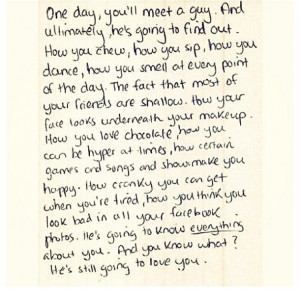 One day, you'll meet a guy. And
ultimately, he's going to find out.
How you chew, how you sip, how you
dance, how you smell at every point
of the day. The fact that most of
your friends are shallow. How your
face looks underneath your makeup.
How you love chocolate, how you
can be hyper at times, how certain
games and songs and shows make you
happy. How cranky you can get
when you're tired, how you think you
look bad in all your facebook
photos. He's going to know everything
about you. And you know what?
He's still going to love you.